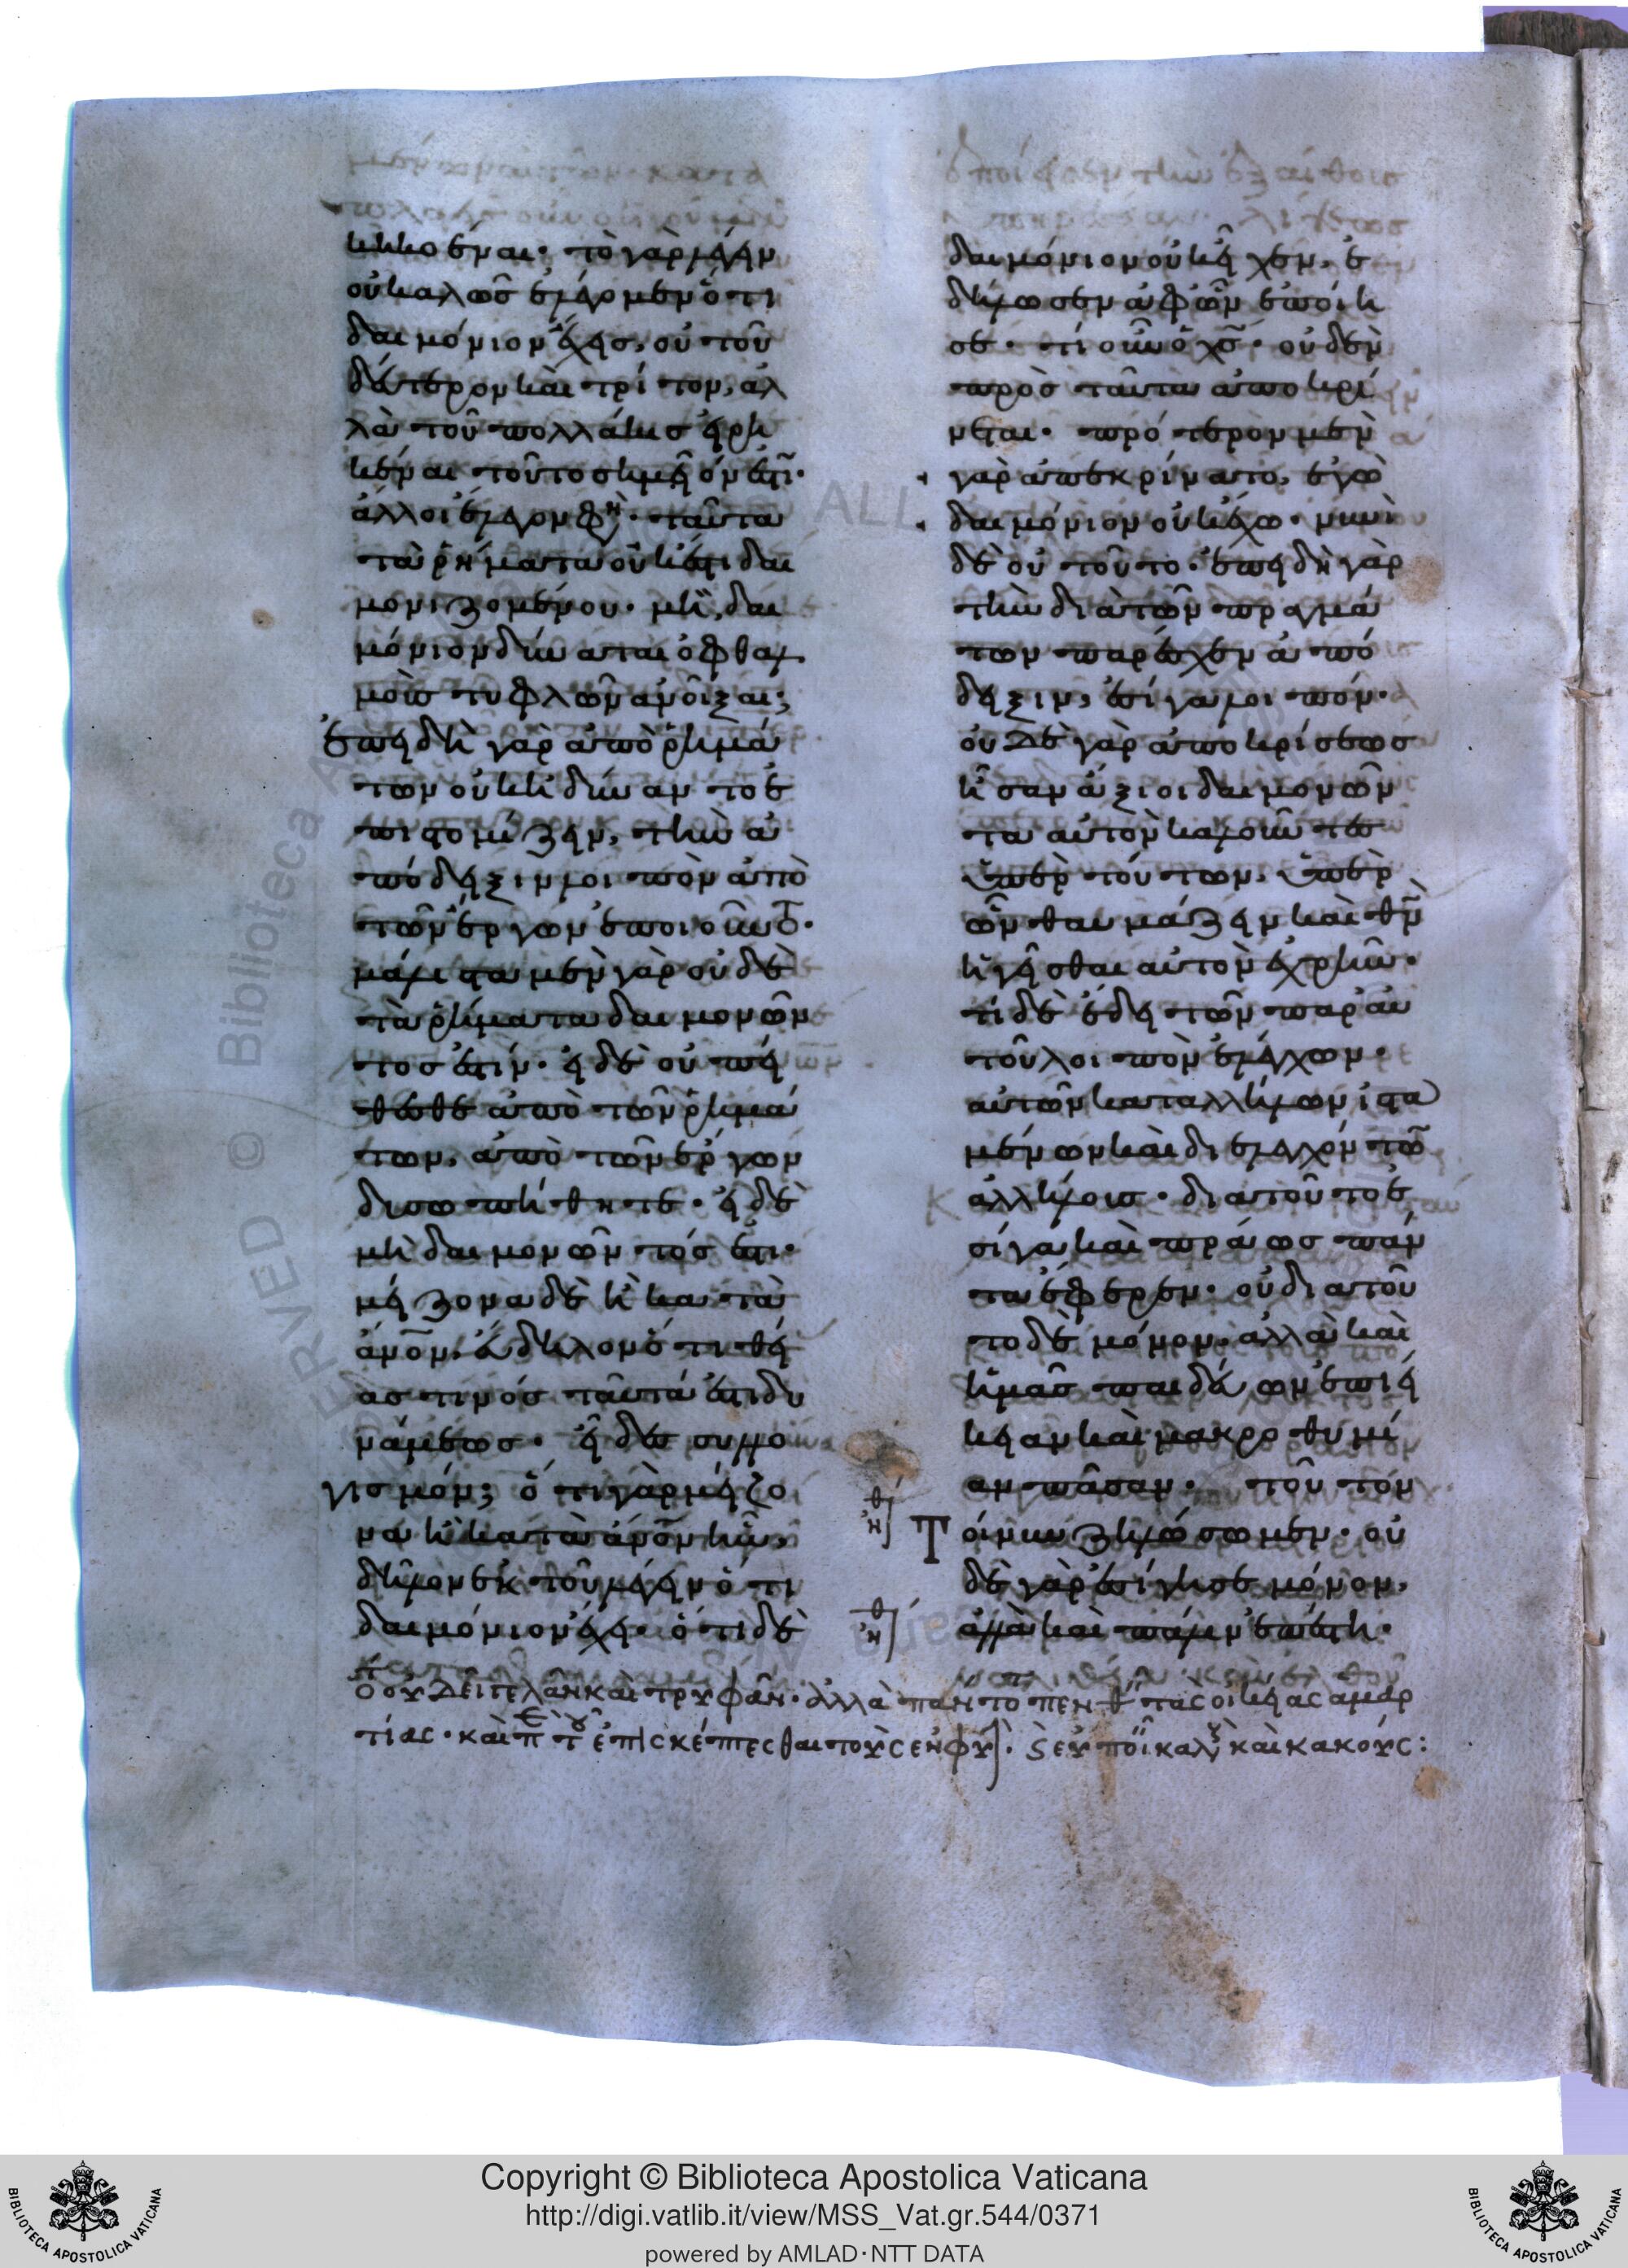 κηκοέναι· τὸ γὰρ λέγειν
οὐ καλῶς ἐλέγομεν ὅτι
δαιμόνιον ἔχεις, οὐ τοῦ
δεύτερον καὶ τρίτον, ἀλ
λὰ τοῦ πολλάκις εἰρη
κέναι τοῦτο σημεῖόν ἐστι·
ἄλλοι ἔλεγον φη· ταῦτα
τὰ ῥήματα οὐκ ἔστι δαι
μονιζομένου· μὴ, δαι
μόνιον δύναται ὀφθαλ
μοῖς τυφλῶν ἀνοῖξαι;
ἐπειδὴ γὰρ ἀπὸ ῥημά
των οὐκ ἠδύναντο ἐ
πιστομίζειν, τὴν ἀ
πόδειξιν λοιπὸν ἀπὸ
τῶν ἔργων ἐποιοῦντο·
μάλιστα μὲν γὰρ οὐδὲ
τὰ ῥήματα δαιμονῶν
τός ἐστιν· εἰ δὲ οὐ πεί
θεσθε ἀπὸ τῶν ῥημά
των, ἀπὸ τῶν ἔργων
δυσωπήθητε· εἰ δὲ
μὴ δαιμονῶντός ἐστι·
μείζονα δὲ ἢ κατὰ
ἄνον, εὔδηλον ὅτι θεί
ας τινός ταῦτά ἐστι δυ
νάμεως· εἶδες συλλο
γισμόν; ὅτι γὰρ μείζο
να ἢ κατὰ ἄνον ἦν,
δῆλον ἐκ τοῦ λέγειν ὅτι
δαιμόνιον ἔχει· ὅτι δὲ
δαιμόνιον οὐκ εἶχεν, ἐ
δήλωσεν ἀφ' ὧν ἐποίη
σε· τί οὖν ὁ χς· οὐδὲν
πρὸς ταῦτα ἀποκρί
νεται· πρότερον μὲν
γὰρ ἀπεκρίνατο, ἐγὼ
δαιμόνιον οὐκ ἔχω· νυνὶ
δὲ οὐ τοῦτο· ἐπειδὴ γὰρ
τὴν διὰ τῶν πραγμά
των παρέσχεν ἀπό
δειξιν, ἐσίγα λοιπόν·
οὐδὲ γὰρ ἀποκρίσεως
ἦσαν ἄξιοι δαιμονῶν
τα αὐτὸν καλοῦντες
ὑπὲρ τούτων, ὑπὲρ
ὧν θαυμάζειν καὶ θν
ἡγεῖσθαι αὐτὸν ἐχρῆν·
τί δὲ ἔδει τῶν παρ' αὐ
τοῦ λοιπὸν ἐλέγχων·
αὐτῶν κατ' ἀλλήλων ἱστα
μένων καὶ διελεγχόντων
ἀλλήλοις· διὰ τοῦτο ἐ
σίγα καὶ πράως πάν
τα ἔφερεν· οὐ διὰ τοῦ
το δὲ μόνον, ἀλλὰ καὶ
ἡμᾶς παιδεύων ἐπιεί
κειαν καὶ μακροθυμί
αν πᾶσαν· τοῦτον
Τοίνυν ζηλώσωμεν· οὐ
δὲ γὰρ ἐσίγησε μόνον,
ἀλλὰ καὶ πάλιν ἐπέστη·
ὅ οὐ δεῖ γελᾶν καὶ τρυφᾶν· ἀλλὰ πάντο πενθ τὰς οἰκείας ἁμαρ
τίας· καὶ π τ ἐπισκέπτεσθαι τοὺς ἐν φυ· κὰι κακούς:
Copyright © Biblioteca Apostolica Vaticana
http://digi.vatlib.it/view/MSS_Vat.gr.544/0371
powered by AMLAD·NTT DATA
BIBLIOTECA APOSTOLICA VATICANA
BIBLIOTECA APOSTOLICA VATICANA